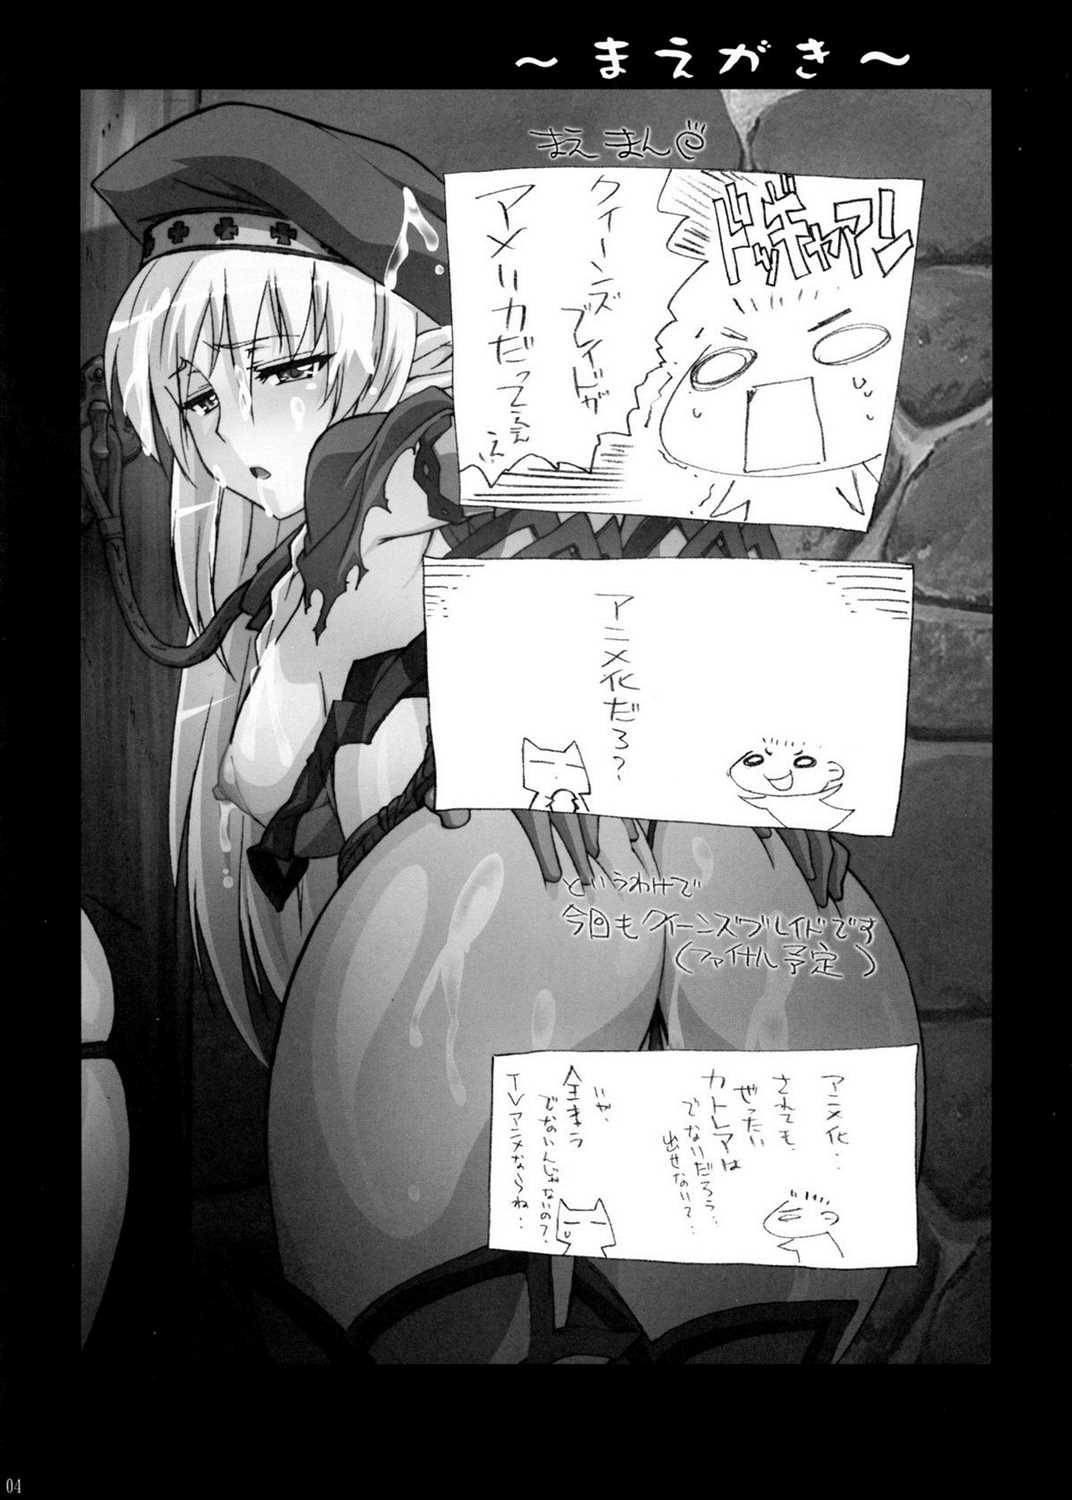 ～まえがき～
まえまん
ドッギャアァン
クィーンズ
ブレイドが
アメリカだってぇぇ
アニメ化だろ?
というわけで
今回もクイーンズブレイドです
(ファイナル予定)
アニメ化‥
されても、
ぜったい
カトレアは
でないだろう‥
出せないって‥
いや、
全キャラ
でないんじゃないの?
TVアニメならね‥
04